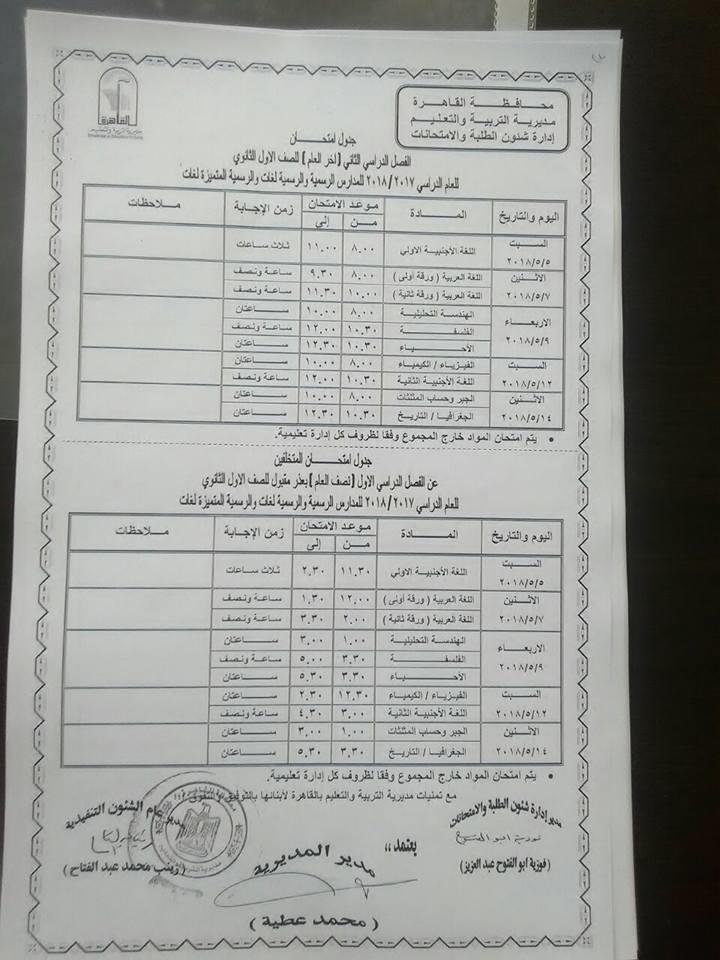 محافظة القاهرة
مديرية التربية والتعليم
إدارة شئون الطلبة والامتحانات
القاهرة
جدول امتحان
الفصل الدراسي الثاني (اخر العام) للصف الاول الثانوي
للعام الدراسي ٢٠١٧/٢٠١٨ للمدارس الرسمية والرسمية لغات والرسمية المتميزة لغات
اليوم والتاريخ المادة موعد الامتحان زمن الإجابة ملاحظات
من إلى
السبت ٢٠١٨/٥/٥ اللغة الأجنبية الاولي ٨.٠٠ ١١.٠٠ ثلاث ساعات
الاثنين ٢٠١٨/٥/٧ اللغة العربية (ورقة أولى) ٨.٠٠ ٩.٣٠ ساعة ونصف
اللغة العربية (ورقة ثانية) ١٠.٠٠ ١١.٣٠ ساعة ونصف
الاربعاء ٢٠١٨/٥/٩ الهندسة التحليلية ٨.٠٠ ١٠.٠٠ ساعتان
الفلسفة ١٠.٣٠ ١٢.٠٠ ساعة ونصف
الأحياء ١٠.٣٠ ١٢.٣٠ ساعتان
السبت ٢٠١٨/٥/١٢ الفيزياء / الكيمياء ٨.٠٠ ١٠.٠٠ ساعتان
اللغة الأجنبية الثانية ١٠.٣٠ ١٢.٠٠ ساعة ونصف
الاثنين ٢٠١٨/٥/١٤ الجبر وحساب المثلثات ٨.٠٠ ١٠.٠٠ ساعتان
الجغرافيا / التاريخ ١٠.٣٠ ١٢.٣٠ ساعتان
• يتم امتحان المواد خارج المجموع وفقا لظروف كل إدارة تعليمية.
جدول امتحان المتخلفين
عن الفصل الدراسي الاول (نصف العام) بعذر مقبول للصف الاول الثانوي
للعام الدراسي ٢٠١٧/٢٠١٨ للمدارس الرسمية والرسمية لغات والرسمية المتميزة لغات
اليوم والتاريخ المادة موعد الامتحان زمن الإجابة ملاحظات
من إلى
السبت ٢٠١٨/٥/٥ اللغة الأجنبية الاولي ١١.٣٠ ٢.٣٠ ثلاث ساعات
الاثنين ٢٠١٨/٥/٧ اللغة العربية (ورقة أولى) ١٢.٠٠ ١.٣٠ ساعة ونصف
اللغة العربية (ورقة ثانية) ٢.٠٠ ٣.٣٠ ساعة ونصف
الاربعاء ٢٠١٨/٥/٩ الهندسة التحليلية ١.٠٠ ٣.٠٠ ساعتان
الفلسفة ٣.٣٠ ٥.٠٠ ساعة ونصف
الأحياء ٣.٣٠ ٥.٣٠ ساعتان
السبت ٢٠١٨/٥/١٢ الفيزياء / الكيمياء ١٢.٣٠ ٢.٣٠ ساعتان
اللغة الأجنبية الثانية ٣.٠٠ ٤.٣٠ ساعة ونصف
الاثنين ٢٠١٨/٥/١٤ الجبر وحساب المثلثات ١.٠٠ ٣.٠٠ ساعتان
الجغرافيا / التاريخ ٣.٣٠ ٥.٣٠ ساعتان
• يتم امتحان المواد خارج المجموع وفقا لظروف كل إدارة تعليمية.
مع تمنيات مديرية التربية والتعليم بالقاهرة لأبنائها بالتوفيق والتفوق
مدير إدارة شئون الطلبة والامتحانات
(فوزية ابو الفتوح عبد العزيز)
يعتمد ،،
مدير المديرية
(محمد عطية)
مدير عام الشئون التنفيذية
(زينب محمد عبد الفتاح)